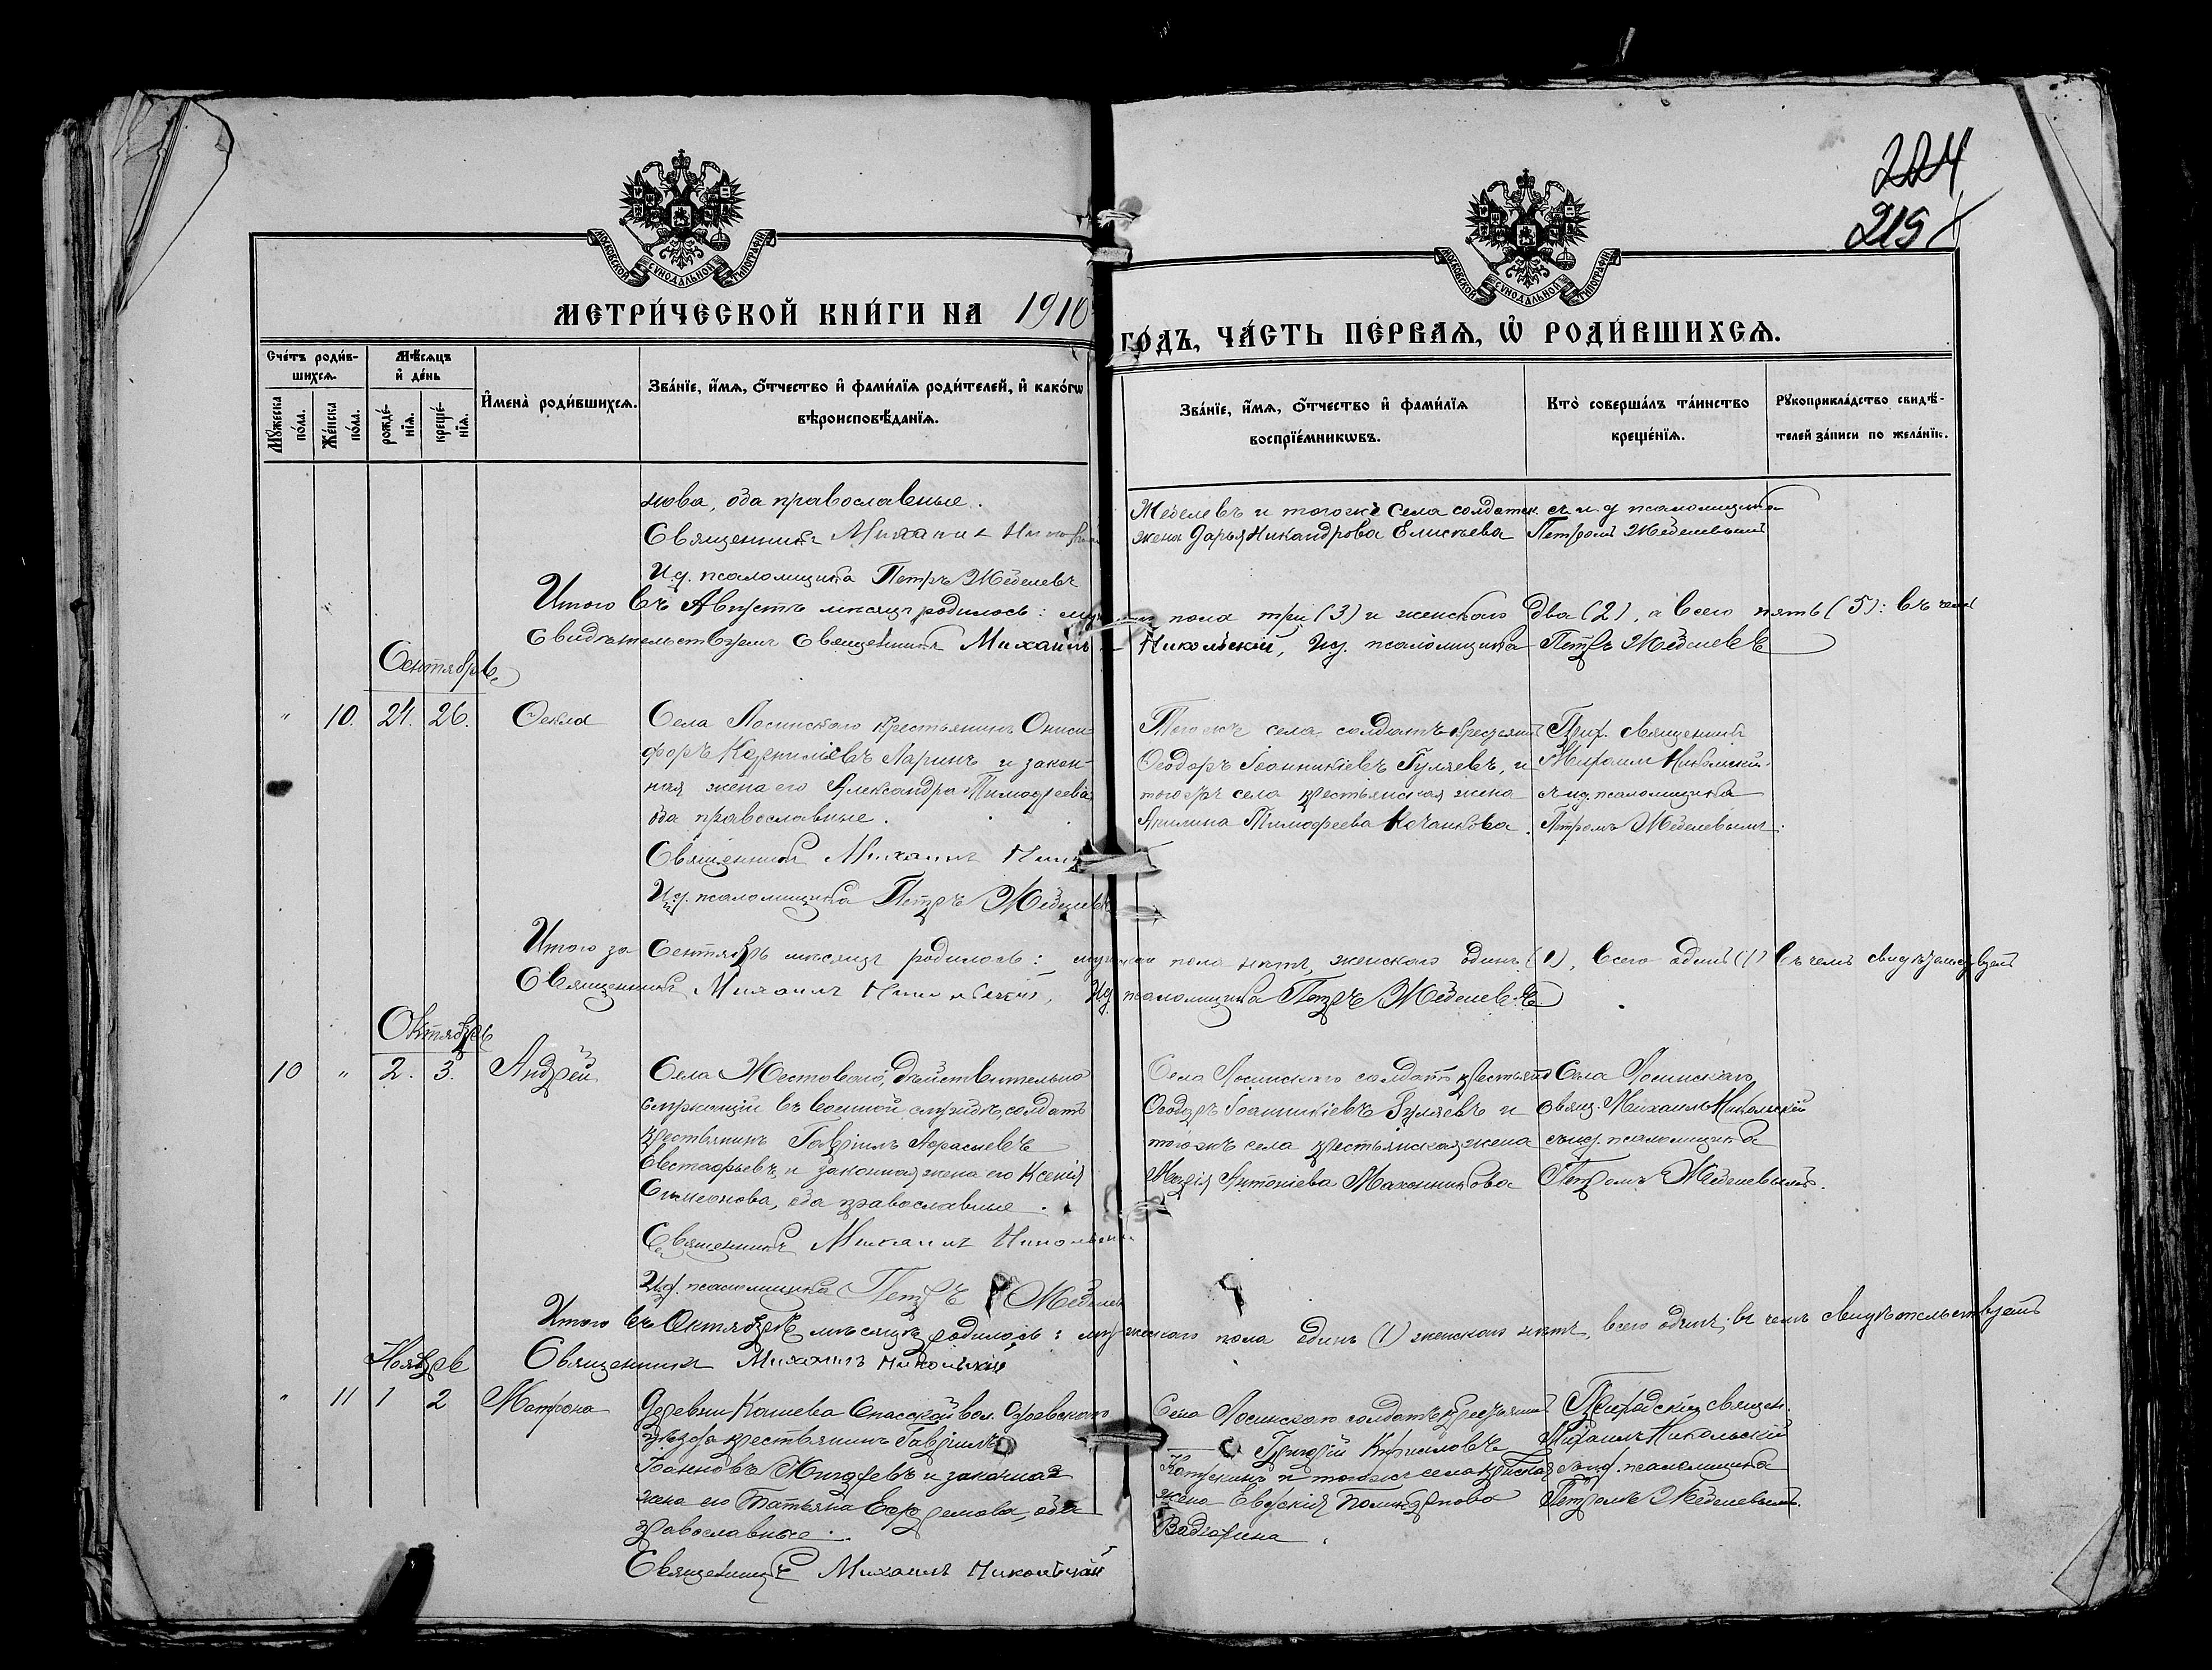 224
215
МОСКОВСКОЙ СѴНОДАЛЬНОЙ ТИПОГРАФІИ
МОСКОВСКОЙ СѴНОДАЛЬНОЙ ТИПОГРАФІИ
МЕТРИ́ЧЕСКОЙ КНИ́ГИ НА 1910
ГО́ДЪ, ЧА́СТЬ ПЕ́РВАѦ, Ѡ҆ РОДИ́ВШИХСѦ.
Сче́тъ роди́в-
шихсѧ.
Мѣ́сѧцъ
и҆ де́нь
Мꙋ́жеска
по́ла.
Же́нска
по́ла.
рожде́-
нїѧ.
креще́-
нїѧ.
И҆мена̀ роди́вшихсѧ.
Зва́нїе, и҆́мѧ, ѻ҆́тчество и҆ фами́лїѧ роди́телей, и҆ како́гѡ
вѣроисповѣ́данїѧ.
Зва́нїе, и҆́мѧ, ѻ҆́тчество и҆ фами́лїѧ
воспрїе́мникѡвъ.
Кто̀ соверша́лъ та́инство
креще́нїѧ.
Рꙋкоприкла́дство свидѣ́-
телей за́писи по жела́нїю.
нова, оба православные.
Священникъ Михаилъ
И.д. псаломщика Петръ Жеделевъ
Жеделевъ и тогоже села солдатск.
жена Дарья Никандрова Елисѣева
и.д. псаломщика
Петромъ Жеделевымъ
Итого въ Августѣ мѣсяцѣ родилось: пола три (3) и женскаго два (2), а всего пять (5): въ чемъ
свидѣтельствуемъ Священникъ Михаилъ Никольскій, И.д. псаломщика Петръ Жеделевъ
Сентябрь
" 10. 24. 26. Ѳекла
Села Лосинскаго крестьянинъ Ониси-
форъ Корниліевъ Ларинъ и закон-
ная жена его Александра Тимоѳеева
оба православные.
Священникъ Михаилъ
И.д. псаломщика Петръ Жеделевъ
Тогоже села солдатъ
Ѳеодоръ Іоанникіевъ Гуляевъ, и
тогоже села крестьянская жена
Акилина Тимоѳеева Качанкова.
Прих. священникъ
Михаилъ Никольскій
съ и.д. псаломщика
Петромъ Жеделевымъ.
Итого за Сентябрь мѣсяцъ родилось: пола нѣтъ, женскаго одинъ (1), всего одинъ (1) въ чемъ свидѣтельствуемъ
Священникъ Михаилъ Никольскій, И.д. псаломщика Петръ Жеделевъ
Октябрь
10 " 2. 3. Андрей
Села Жестоваго, дѣйствительно
служащій въ военной службѣ, солдатъ
крестьянинъ Гавріилъ
Евстафьевъ, и законная жена его Ксенія
Симеонова, оба православные.
Священникъ Михаилъ Никольскій
И.д. псаломщика Петръ Жеделевъ
Села Лосинскаго солдатъ
Ѳеодоръ Іоанникіевъ Гуляевъ и
тогожъ села крестьянская жена
Марія Антоніева Махонникова
Села Лосинскаго
свящ. Михаилъ Никольскій
съ и.д. псаломщика
Петромъ Жеделевымъ.
Итого въ Октябрѣ мѣсяцѣ родилось: мужескаго пола одинъ (1) женскаго нѣтъ, всего одинъ; въ чемъ свидѣтельствуемъ
Священникъ Михаилъ Никольскій
Ноябрь
" 11 1 2 Матрона
Деревни Кашева Спасской вол.
уѣзда крестьянинъ Гавріилъ
Іоанновъ и законная
жена его Татьяна Ефремова, оба
православные.
Священникъ Михаилъ Никольскій
Села Лосинскаго солдатъ
Григорій Кириловъ
и тогожъ села
жена Евдокія
Приходскій священ.
Михаилъ Никольскій
съ и.д. псаломщика
Петромъ Жеделевымъ.